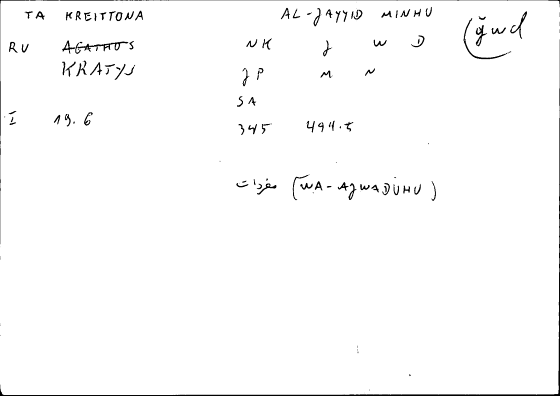 TA KREITTONA AL-JAYYID MINHU ǧwd
RU AGATHOS NK J W D
KRATYS JP M N
SA
I 19.6 345 494.5
مفردات (WA-AJWADUHU)